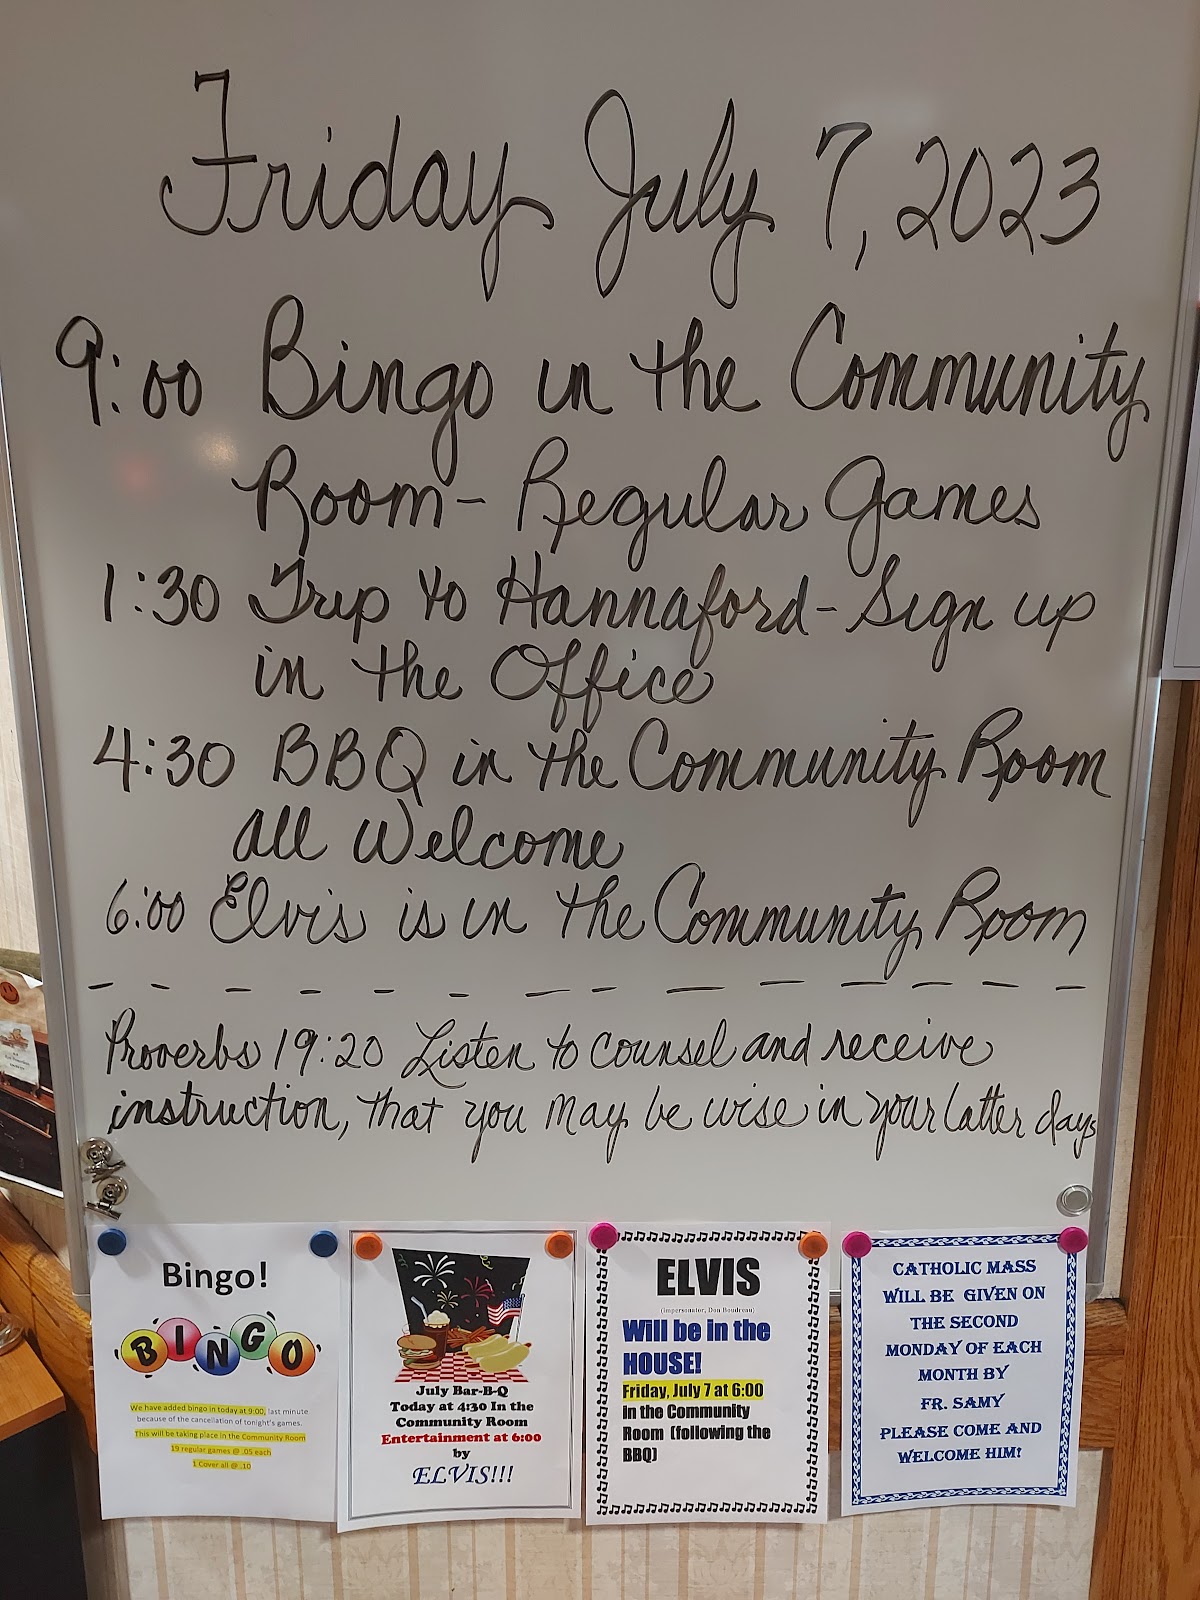 Friday July 7, 2023
9:00 Bingo in the Community
Room - Regular Games
1:30 Trip to Hannaford - Sign up
in the Office
4:30 BBQ in the Community Room
all Welcome
6:00 Elvis is in the Community Room
Proverbs 19:20 Listen to counsel and receive
instruction, that you may be wise in your latter days
Bingo!
BINGO
We have added bingo in today at 9:00, last minute
because of the cancellation of tonight's games.
This will be taking place in the Community Room
19 regular games @ .05 each
1 Cover all @ .10
July Bar-B-Q
Today at 4:30 In the
Community Room
Entertainment at 6:00
by
ELVIS!!!
ELVIS
(impersonator, Don Boudreau)
Will be in the
HOUSE!
Friday, July 7 at 6:00
in the Community
Room (following the
BBQ)
CATHOLIC MASS
WILL BE GIVEN ON
THE SECOND
MONDAY OF EACH
MONTH BY
FR. SAMY
PLEASE COME AND
WELCOME HIM!